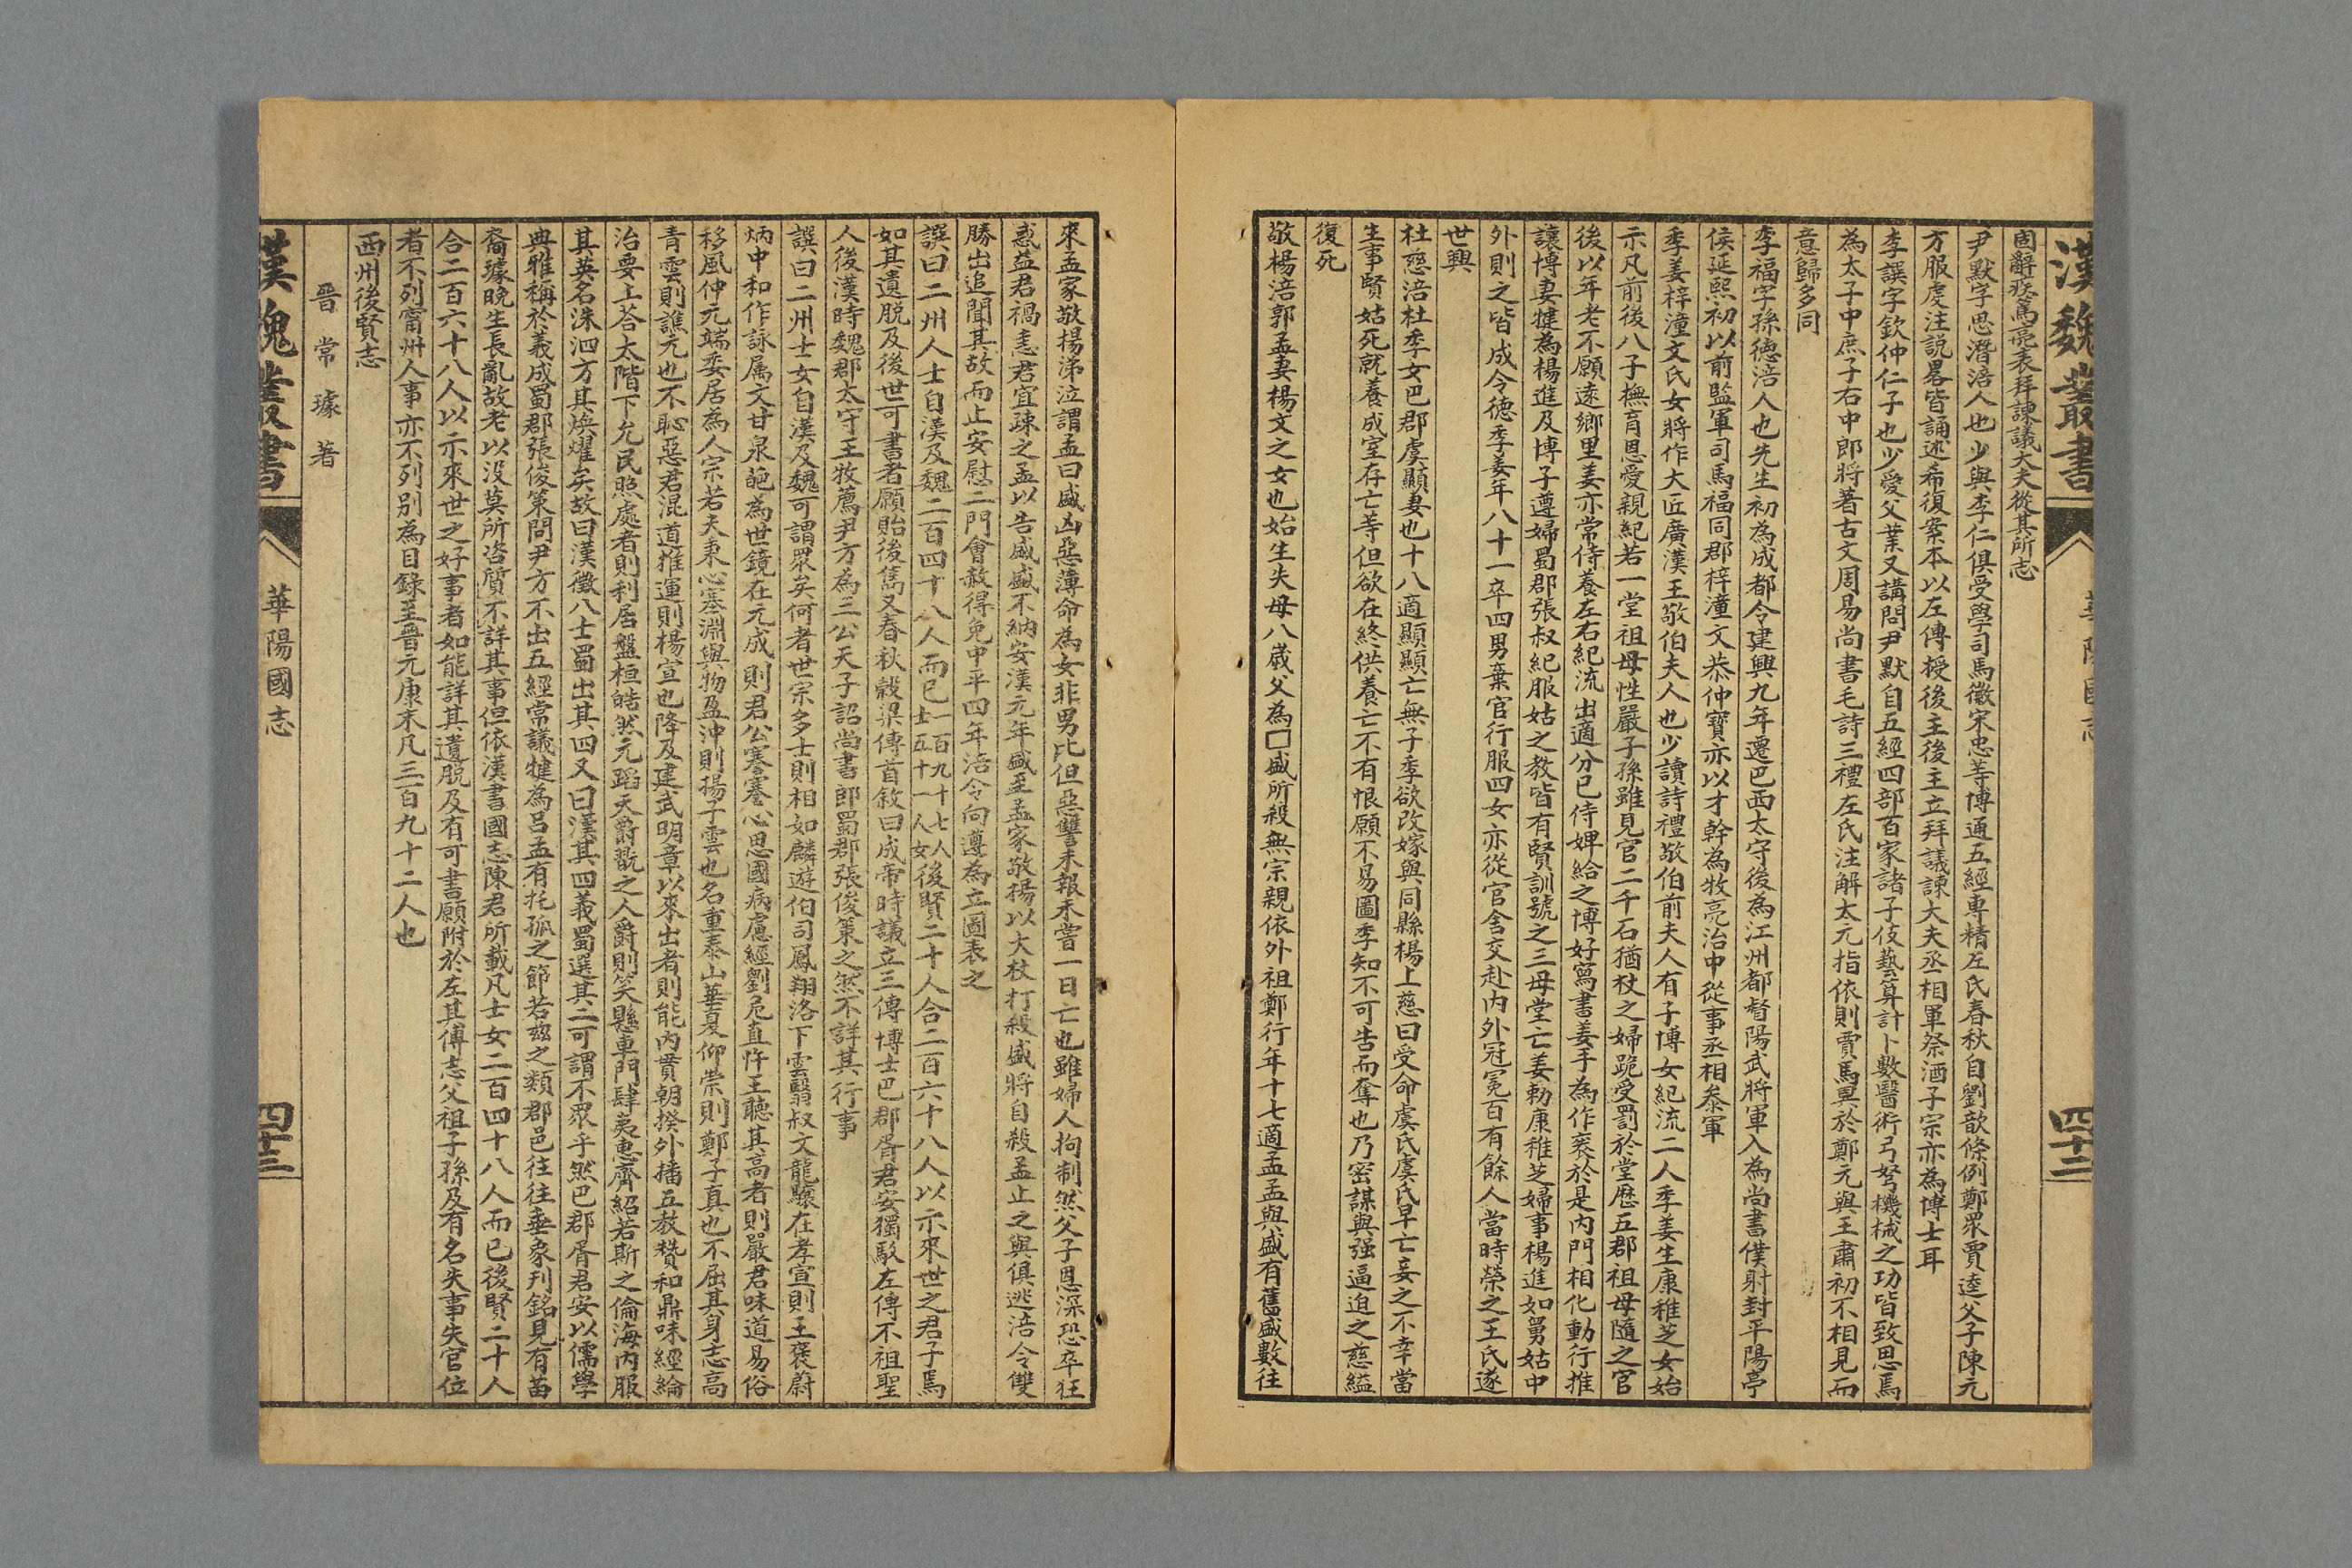 漢魏叢書
華陽國志
四十二
固辭疾篤亮表拜諫議大夫從其所志
尹默字思潛涪人也少與李仁俱受學司馬徽宋忠等博通五經專精左氏春秋自劉歆條例鄭眾賈逵父子陳元
方服虔注説畧皆誦述希復案本以左傳授後主後主立拜議諫大夫丞相軍祭酒子宗亦為博士耳
李譔字欽仲仁子也少愛父業又講問尹默自五經四部百家諸子伎藝算計卜數醫術弓弩機械之功皆致思焉
為太子中庶子右中郎將著古文周易尚書毛詩三禮左氏注解太元指依則賈馬異於鄭元與王肅初不相見而
意歸多同
李福字孫徳涪人也先生初為成都令建興九年遷巴西太守後為江州都督陽武將軍入為尚書僕射封平陽亭
侯延熙初以前監軍司馬福同郡梓潼文恭仲寶亦以才幹為牧亮治中從事丞相參軍
季姜梓潼文氏女將作大匠廣漢王敬伯夫人也少讀詩禮敬伯前夫人有子博女紀流二人季姜生康稚芝女始
示凡前後八子撫育恩愛親紀若一堂祖母性嚴子孫雖見官二千石猶杖之婦跪受罰於堂歴五郡祖母隨之官
後以年老不願遠鄉里姜亦常侍養左右紀流出適分已侍婢給之博好寫書姜手為作袠於是内門相化動行推
讓博妻犍為楊進及博子遵婦蜀郡張叔紀服姑之教皆有賢訓號之三母堂亡姜勑康稚芝婦事楊進如舅姑中
外則之皆成令徳季姜年八十一卒四男棄官行服四女亦從官舍交赴内外冠冕百有餘人當時榮之王氏遂
世興
杜慈涪杜季女巴郡虞顯妻也十八適顯顯亡無子季欲改嫁與同縣楊上慈曰受命虞氏虞氏早亡妾之不幸當
生事賢姑死就養成室存亡等但欲在終供養亡不有恨願不易圖季知不可告而奪也乃密謀與强逼迫之慈縊
復死
敬楊涪郭孟妻楊文之女也始生失母八歳父為□盛所殺無宗親依外祖鄭行年十七適孟孟與盛有舊盛數往
來孟家敬楊涕泣謂孟曰盛凶惡薄命為女非男比但惡讐未報未嘗一日亡也雖婦人拘制然父子恩深恐卒狂
惑益君禍恚君宜疎之孟以告盛盛不納安漢元年盛至孟家敬揚以大杖打殺盛將自殺孟止之與俱逃涪令雙
勝出追聞其故而止安慰二門會赦得免中平四年涪令向遵為立圖表之
譔曰二州人士自漢及魏二百四十八人而已一百九十七人士五十一人女後賢二十人合二百六十八人以示來世之君子焉
如其遺脱及後世可書者願貽後雋又春秋穀梁傳首敘曰成帝時議立三傳博士巴郡胥君安獨駮左傳不祖聖
人後漢時魏郡太守王牧薦尹方為三公天子詔尚書郎蜀郡張俊策之然不詳其行事
譔曰二州士女自漢及魏可謂眾矣何者世宗多士則相如麟遊伯司鳳翔洛下雲翳叔文龍驤在孝宣則王褒蔚
炳中和作詠属文甘泉葩為世鏡在元成則君公謇謇心思國病慮經劉危直忤王聴其高者則嚴君味道易俗
移風仲元端委居為人宗若夫秉心塞淵與物盈沖則揚子雲也名重泰山華夏仰崇則鄭子真也不屈其身志高
青雲則譙元也不恥惡君混道推運則楊宣也降及建武明章以來出者則能内貫朝揆外播五教贊和鼎味經綸
治要上荅太階下允民照處者則利居盤桓皓然元蹈天爵翫之人爵則笑懸車門肆夷惠齊紹若斯之倫海内服
其英名洙泗方其煥耀矣故曰漢徵八士蜀出其四又曰漢其四義蜀選其二可謂不眾乎然巴郡胥君安以儒學
典雅稱於義成蜀郡張俊策問尹方不出五經常議犍為呂孟有托孤之節若兹之類郡邑往往垂象刋銘見有苗
裔璩晩生長亂故老以没莫所咨質不詳其事但依漢書國志陳君所載凡士女二百四十八人而已後賢二十人
合二百六十八人以示來世之好事者如能詳其遺脱及有可書願附於左其傅志父祖子孫及有名失事失官位
者不列甯州人事亦不列别為目錄至晉元康末凡三百九十二人也
西州後賢志
晉 常 璩 著
漢魏叢書
華陽國志
四十三